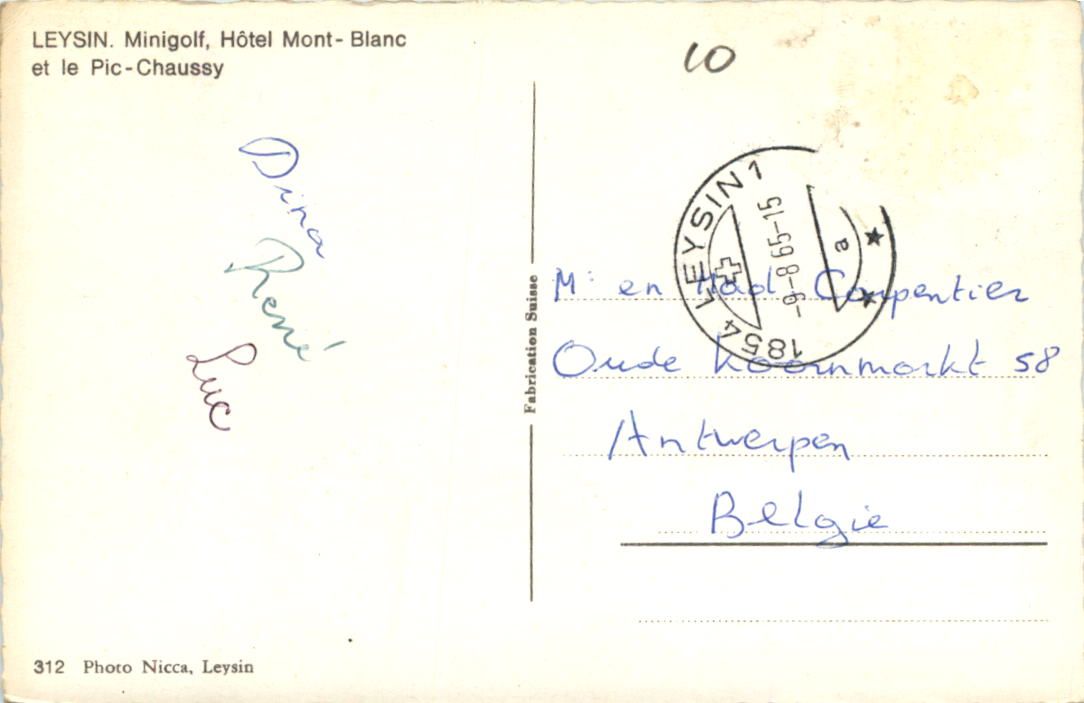 LEYSIN. Minigolf, Hôtel Mont-Blanc
et le Pic-Chaussy
10
Dina
René
Luc
1854 LEYSIN 1
-9-8-65-15
a
Fabrication Suisse
Mr en Mad Carpentier
Oude Koornmarkt 58
Antwerpen
België
312 Photo Nicca, Leysin